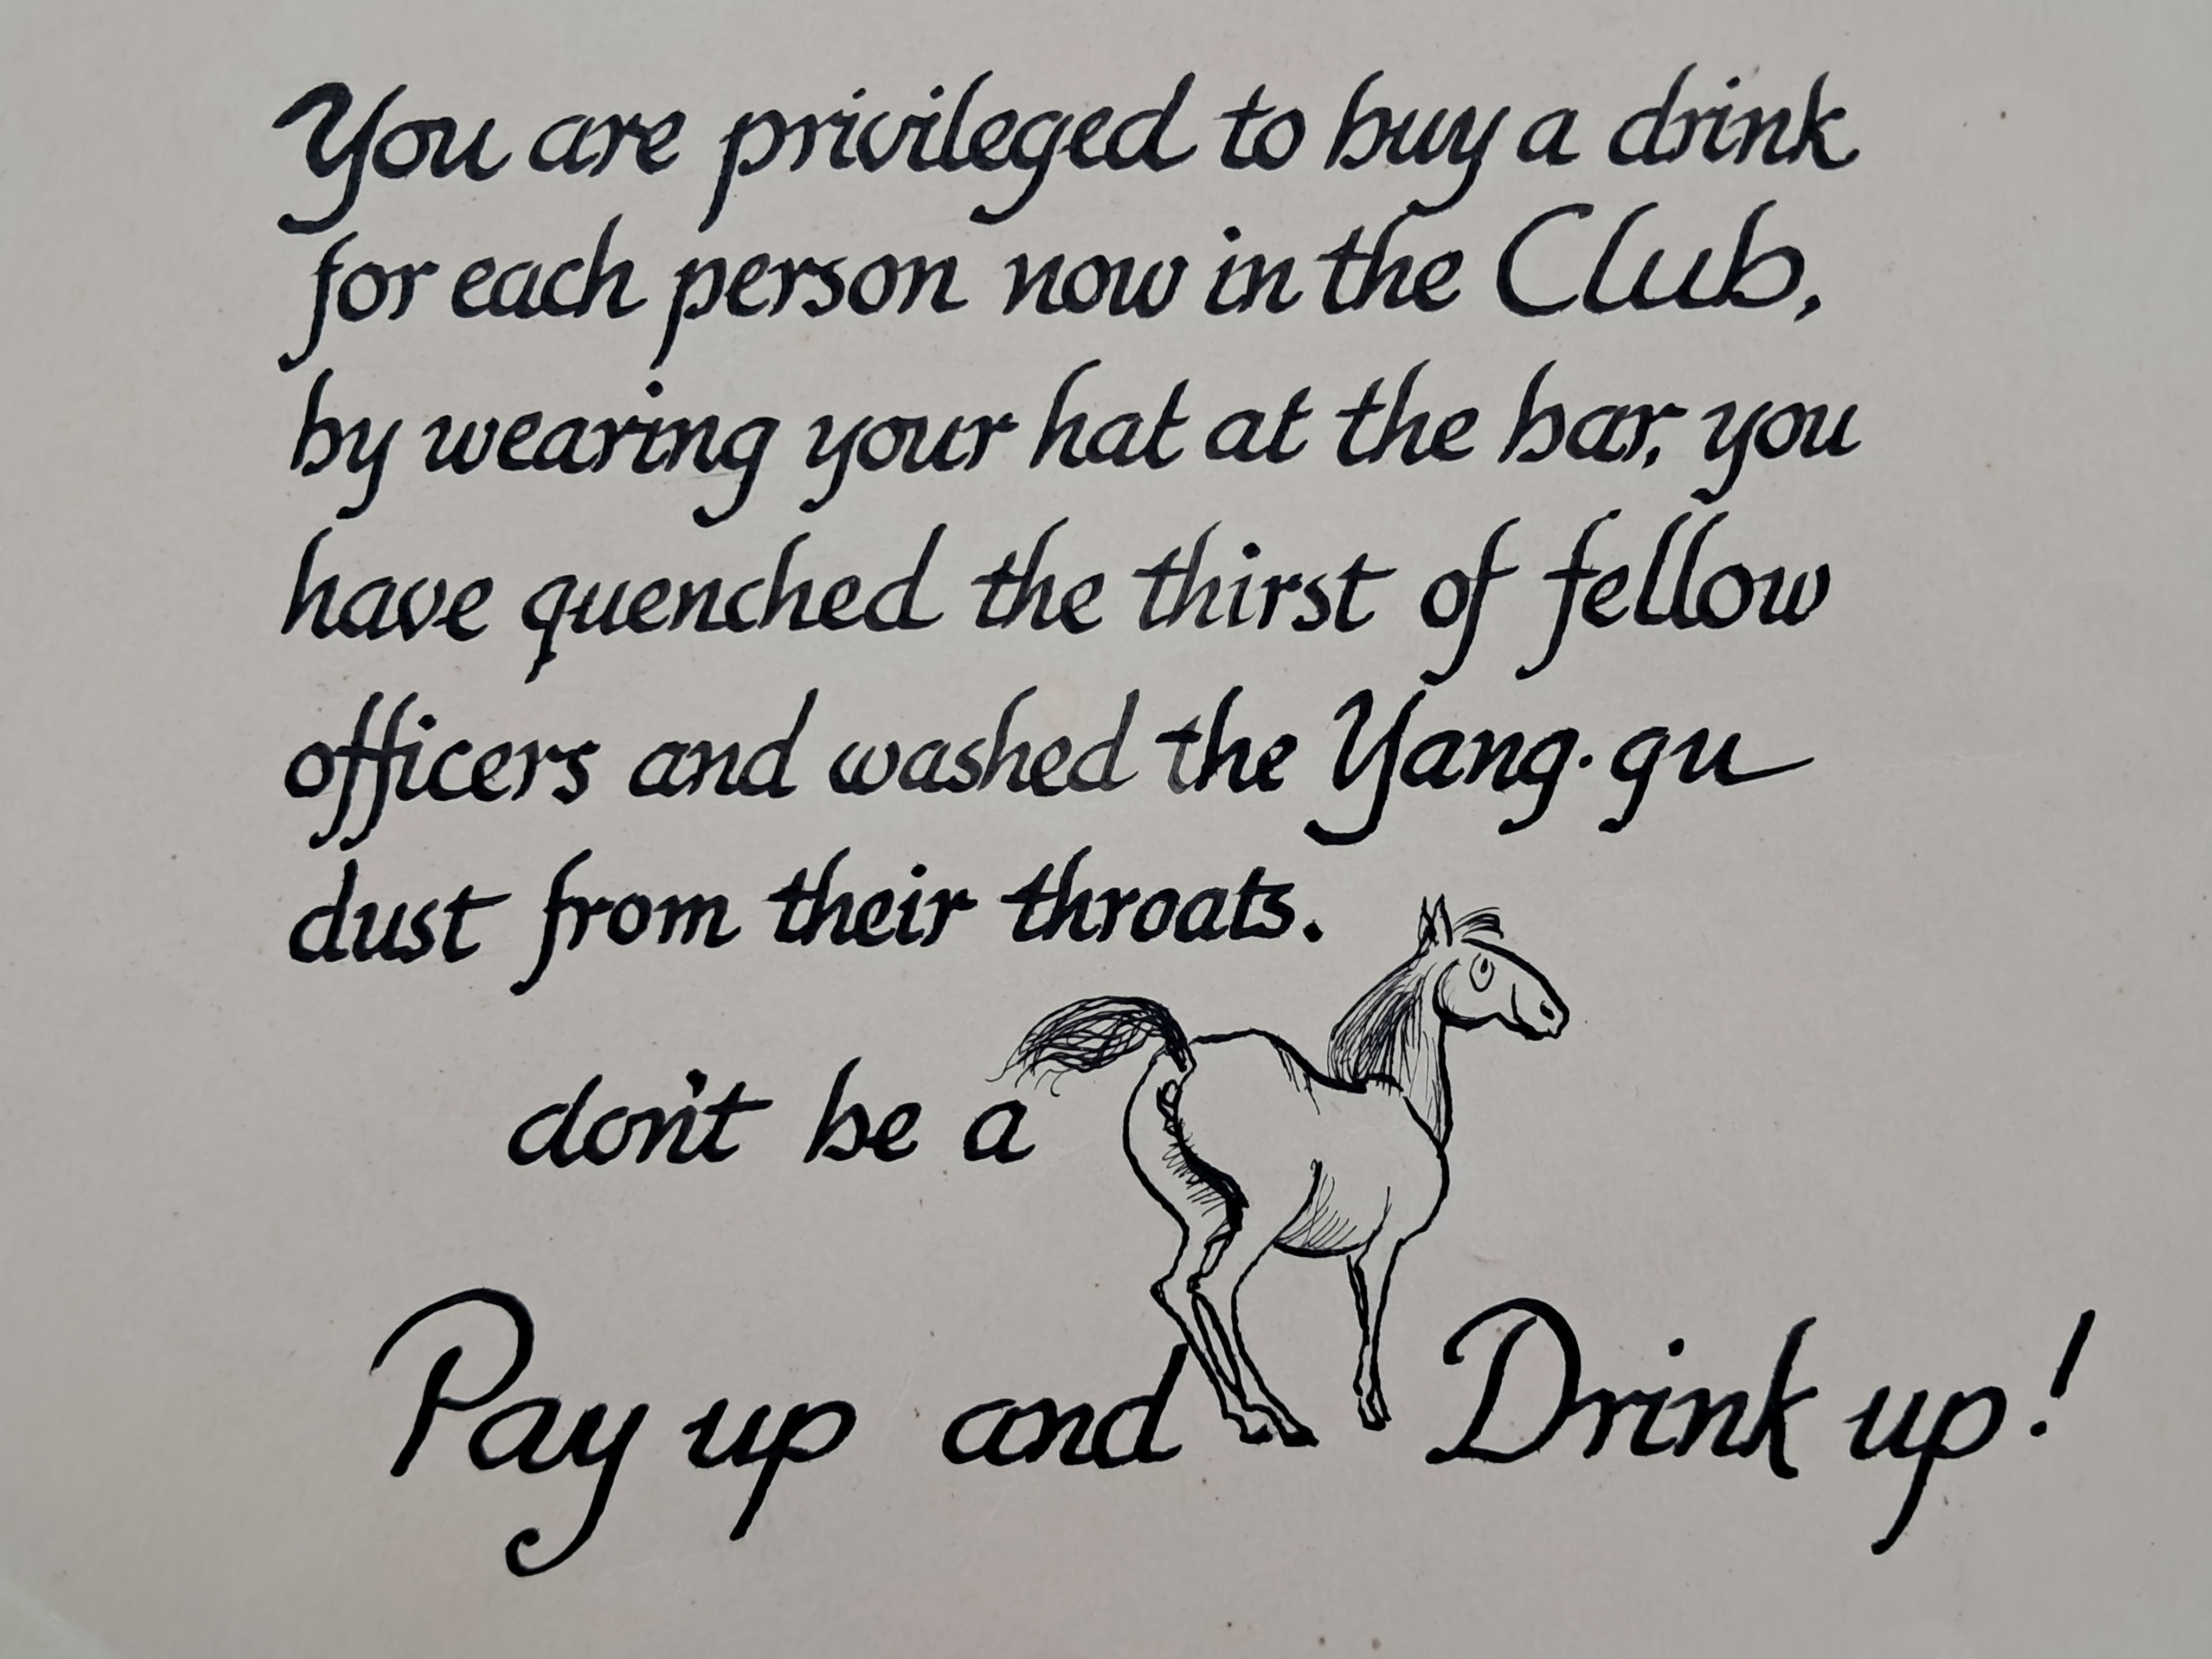 You are privileged to buy a drink
for each person now in the Club,
by wearing your hat at the bar, you
have quenched the thirst of fellow
officers and washed the Yang·gu
dust from their throats.
don't be a
Pay up and Drink up!